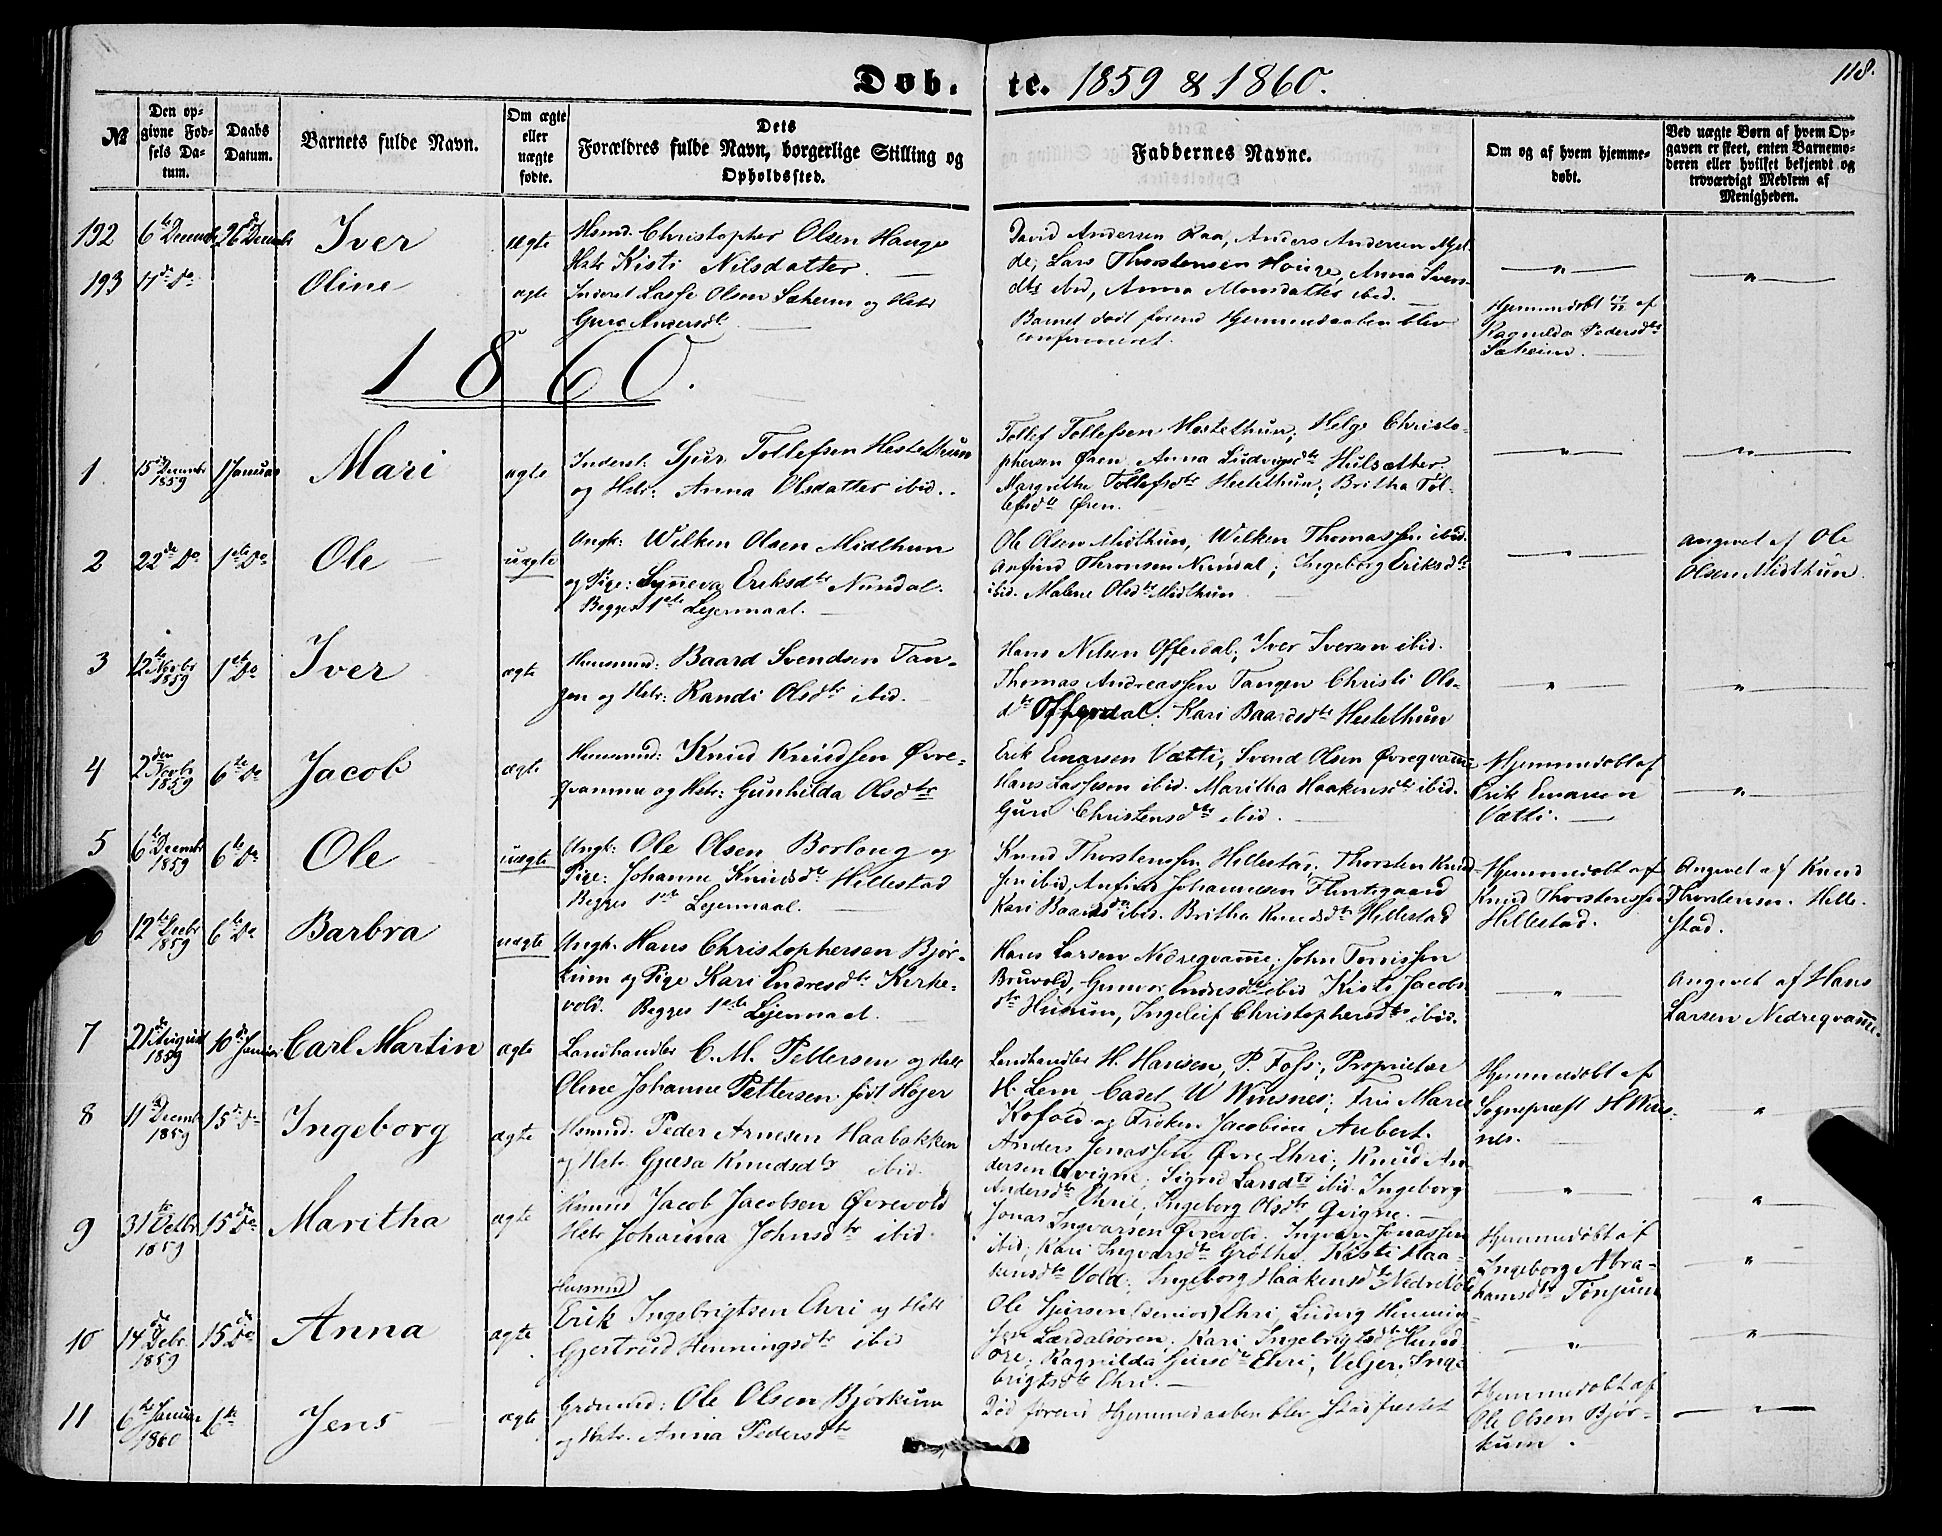 Døb. te. 1859 & 1860. 118.
№
Den op-
givne Fød-
sels Da-
tum.
Daabs
Datum.
Barnets fulde Navn.
Om ægte
eller
uægte
fødte.
Dets
Forældres fulde Navn, borgerlige Stilling og
Opholdssted.
Faddernes Navne.
Om og af hvem hjemme-
døbt.
Ved uægte Børn af hvem Op-
gaven er skeet, enten Barnemo-
deren eller hvilket bekjendt og
troværdigt Medlem af
Menigheden.
192 6te Decembr 26de Decembr Iver ægte
Hsmd. Christopher Olsen Hauge
Hstr Kisti Nilsdatter.
David Andersen Raa, Anders Andersen Mjel-
de, Lars Thorstensen Houge, Anna Sven-
dtr ibid, Anna Monsdatter ibid.
193 17de Do Oline ægte
Inderst Lasse Olsen Sæheim og Hstr
Guro Andersdtr
Barnet død førend Hjemmedaaben blev
confirmeret.
Hjemmedøbt af
Ragnilda Pedersdtr
Sæheim.
1860.
1 15de Decembr 1859 1 Januar Mari ægte
Inderst: Sjur Tollefsen Hestethun
og Hstr: Anna Olsdatter ibid.
Tollef Tollefsen Hestethun, Helge Christo-
phersen Øren, Anna Ludvigsdtr Hulsæther.
Margrethe Tollefsdtr Hestethun; Britha Tol-
lefsdtr Øren.
2 22de Do 1ste Do Ole uægte
Ungk: Wilken Olsen Midthun
og Pige: Synneva Eriksdtr Nundal.
Begges 1ste Lejermaal.
Ole Olsen Midthun, Wilken Thomassen ibid.
Anfind Thronsen Nundal; Ingeborg Eriksdtr
ibid. Malene Olsdtr Midthun
Angivet af Ole
Olsen Midthun.
3 12te Novbr 1859 1ste Do Iver ægte
Huusmd: Baard Svendsen Tan-
gen og Hstr: Randi Olsdtr ibid.
Hans Nilsen Offerdal; Iver Iversen ibid.
Thomas Andreassen Tangen Christi Ols-
dtr Offerdal. Kari Baardsdtr Hestethun
4 2den Novbr 1859 6te Do Jacob ægte
Huusmd: Knud Knudsen Øvre-
qvamme og Hstr: Gunhilda Olsdtr
Erik Emarsen Vætti, Svend Olsen Øvreqvamme
Hans Lassesen ibid. Maritha Haakensdtr ibid.
Guri Christensdtr ibid.
Hjemmedøbt af
Erik Emarsen
Vætti.
5 6te Decembr 1859 6te Do Ole uægte
Ungk: Ole Olsen Borlaug og
Pige: Johanne Knudsdtr Hillestad
Begges 1ste Lejermaal.
Knud Thorstenssen Hillestad; Thorsten Knud-
sen ibid, Anfind Johannesen Flintegaard
Kari Baardsdtr ibid. Britha Knudsdtr Hillestad
Hjemmedøbt af
Knud Thorstenssen
Hillestad.
Angivet af Knud
Thorstensen Hille-
stad.
6 12te Decbr 1859 6te Do Barbra uægte
Ungk. Hans Christophersen Bjør-
kum og Pige Kari Endresdtr Kirke-
vold. Begges 1ste Lejermaal.
Hans Larsen Nedreqvamme; John Tomissen
Bruvold, Gunvor Endresdtr ibid Kisti Jacobs-
dtr Husum, Ingeleif Christophersdtr ibid.
Angivet af Hans
Larsen Nedreqvamme.
7 21de August 1859 10de Januar Carl Martin ægte
Landhandler C. M. Pettersen og Hstr
Oline Johanne Pettersen født Højer
Landhandler H. Hansen, P. Foss, Proprietær
H. Lem, Cadet W Winsnes; Fru Marie
Kofoed og Frøken Jacobine Aubert.
Hjemmedøbt af
Sognepræst H Wins-
nes.
8 11te Decembr 1859 15de Do Ingeborg ægte
Hsmd: Peder Arnesen Haabakken
og Hstr. Gjøsa Knudsdtr ibid.
Anders Jonassen Øvre Ehri; Knud An-
dersen Qvigne; Sigrid Larsdtr ibid. Ingeborg
Andersdtr Ehri; Ingeborg Olsdtr Qvigne.
9 31te Octbr 1859 15de Do Maritha ægte
Hsmnd Jacob Jacobsen Øvrevold
Hstr Johanna Johnsdtr ibid.
Jonas Ingvarsen Øvrevold. Ingvar Jonassen
ibid; Kari Ingvarsdtr Grøthe. Kisti Haa-
kensdtr Vold; Ingeborg Haakensdtr Nedrevold
Hjemmedøbt af
Ingeborg Abra-
hamsdtr Tønjum
10 14de Debr. 1859 15de Do Anna ægte
Huusmd)
Erik Ingebrigtsen Ehri og Hstr
Gjertrud Henningsdtr ibid
Ole Sjursen (senior) Ehri, Ludvig Henning-
sen Lærdalsøren, Kari Ingebrigtsdtr Hund-
ere; Ragnilda Sjursdtr Ehri, Veljer Inge-
brigtsdtr Ehri.
11 6te Januar 1860 6te Jens ægte
Grdmnd: Ole Olsen Bjørkum
og Hstr. Anna Pedersdtr
Død førend Hjemmedaaben blev stadfæstet
Hjemmedøbt af
Ole Olsen Bjør-
kum.